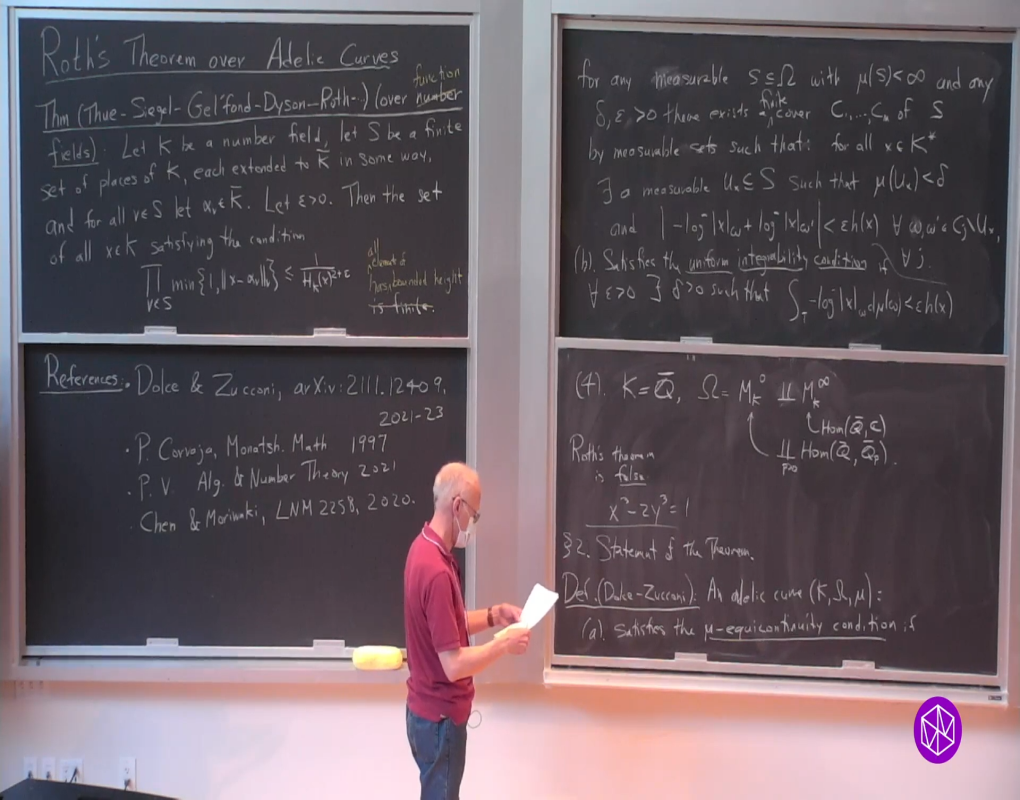 Roth's Theorem over Adelic Curves
function
Thm (Thue-Siegel-Gel'fond-Dyson-Roth-) (over number
fields): Let K be a number field, let S be a finite
set of places of K, each extended to K̄ in some way,
and for all v∈S let αᵥ∈K̄. Let ε>0. Then the set
of all x∈K satisfying the condition
∏_{v∈S} min{1, ||x-αᵥ||ᵥ} ≤ 1/H_K(x)^{2+ε}
all
has bounded height
is finite.
References: · Dolce & Zucconi, arXiv: 2111.12409,
2021-23
· P. Corvaja, Monatsh. Math 1997
· P. V. Alg. & Number Theory 2021
· Chen & Moriwaki, LNM 2258, 2020.
for any measurable S⊆Ω with μ(S)<∞ and any
finite
δ, ε >0 there exists a cover C₁,...,Cₙ of S
by measurable sets such that: for all x∈K*
∃ a measurable Uₓ⊆S such that μ(Uₓ)<δ
and |-log⁻|x|_ω + log⁻|x|_ω'| < εh(x) ∀ ω,ω'∈Cⱼ\Uₓ,
(b). Satisfies the uniform integrability condition if ∀ j.
∀ ε>0 ∃ δ>0 such that ∫_T -log⁻|x|_ω dμ(ω) < εh(x)
(4). K=Q̄, Ω= M_K^0 ⨿ M_K^∞
Hom(Q̄,C)
⨿_{p>0} Hom(Q̄, Q̄_p).
Roth's theorem
is false.
x³-2y³=1
§2. Statement of the Theorem.
Def. (Dolce-Zucconi): An adelic curve (K,Ω,μ):
(a). Satisfies the μ-equicontinuity condition if